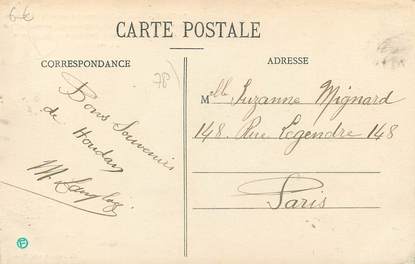 6€
CARTE POSTALE
CORRESPONDANCE
78
Bons Souvenirs
de Houdan
ADRESSE
Mlle Suzanne Mignard
148. Rue Legendre 148
Paris